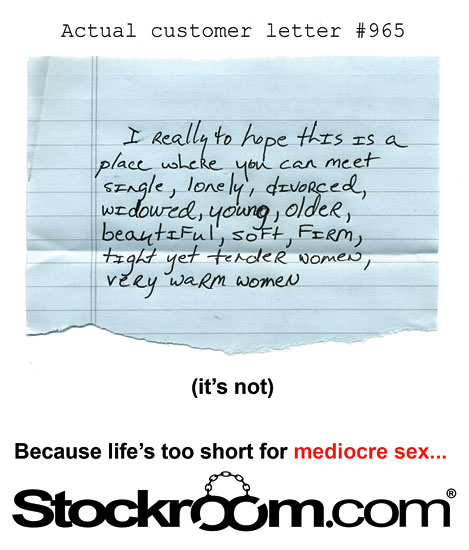 Actual customer letter #965
I Really to hope this is a
place where you can meet
single, lonely, divorced,
widowed, young, older,
beautiful, soft, firm,
tight yet tender women,
very warm women
(it's not)
Because life's too short for mediocre sex...
Stockroom.com®